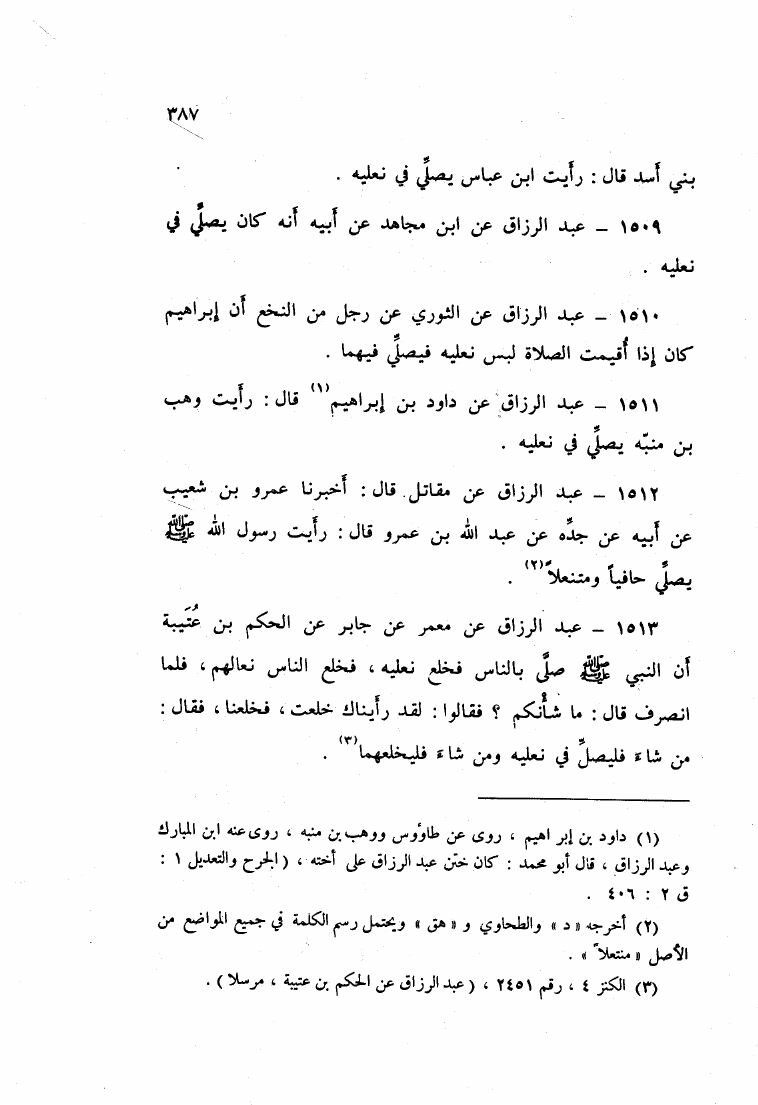 ٣٨٧
بني أَسد قال : رأَيت ابن عباس يصلِّي في نعليه .
١٥٠٩ – عبد الرزاق عن ابن مجاهد عن أَبيه أَنه كان يصلِّي في
نعليه .
١٥١٠ – عبد الرزاق عن الثوري عن رجل من النخع أَن إبراهيم
كان إذا أُقيمت الصلاة لبس نعليه فيصلِّي فيهما .
١٥١١ – عبد الرزاق عن داود بن إبراهيم(١) قال : رأَيت وهب
بن منبّه يصلِّي في نعليه .
١٥١٢ – عبد الرزاق عن مقاتل قال : أَخبرنا عمرو بن شعيب
عن أَبيه عن جدِّه عن عبد الله بن عمرو قال : رأَيت رسول الله ﷺ
يصلِّي حافياً ومتنعلاً(٢) .
١٥١٣ – عبد الرزاق عن معمر عن جابر عن الحكم بن عُتَيبة
أَن النبي ﷺ صلَّى بالناس فخلع نعليه ، فخلع الناس نعالهم ، فلما
انصرف قال : ما شأْنكم ؟ فقالوا : لقد رأَيناك خلعت ، فخلعنا ، فقال :
من شاءَ فليصلِّ في نعليه ومن شاءَ فليخلعهما(٣) .
(١) داود بن إبراهيم ، روى عن طاؤوس ووهب بن منبه ، روى عنه ابن المبارك
وعبد الرزاق ، قال أبو محمد : كان ختن عبد الرزاق على أخته ، (الجرح والتعديل ١ :
ق ٢ : ٤٠٦ .
(٢) أخرجه « د » والطحاوي و « هق » ويحتمل رسم الكلمة في جميع المواضع من
الأصل « منتعلاً » .
(٣) الكنز ٤ ، رقم ٢٤٥١ ، (عبد الرزاق عن الحكم بن عتيبة ، مرسلا) .